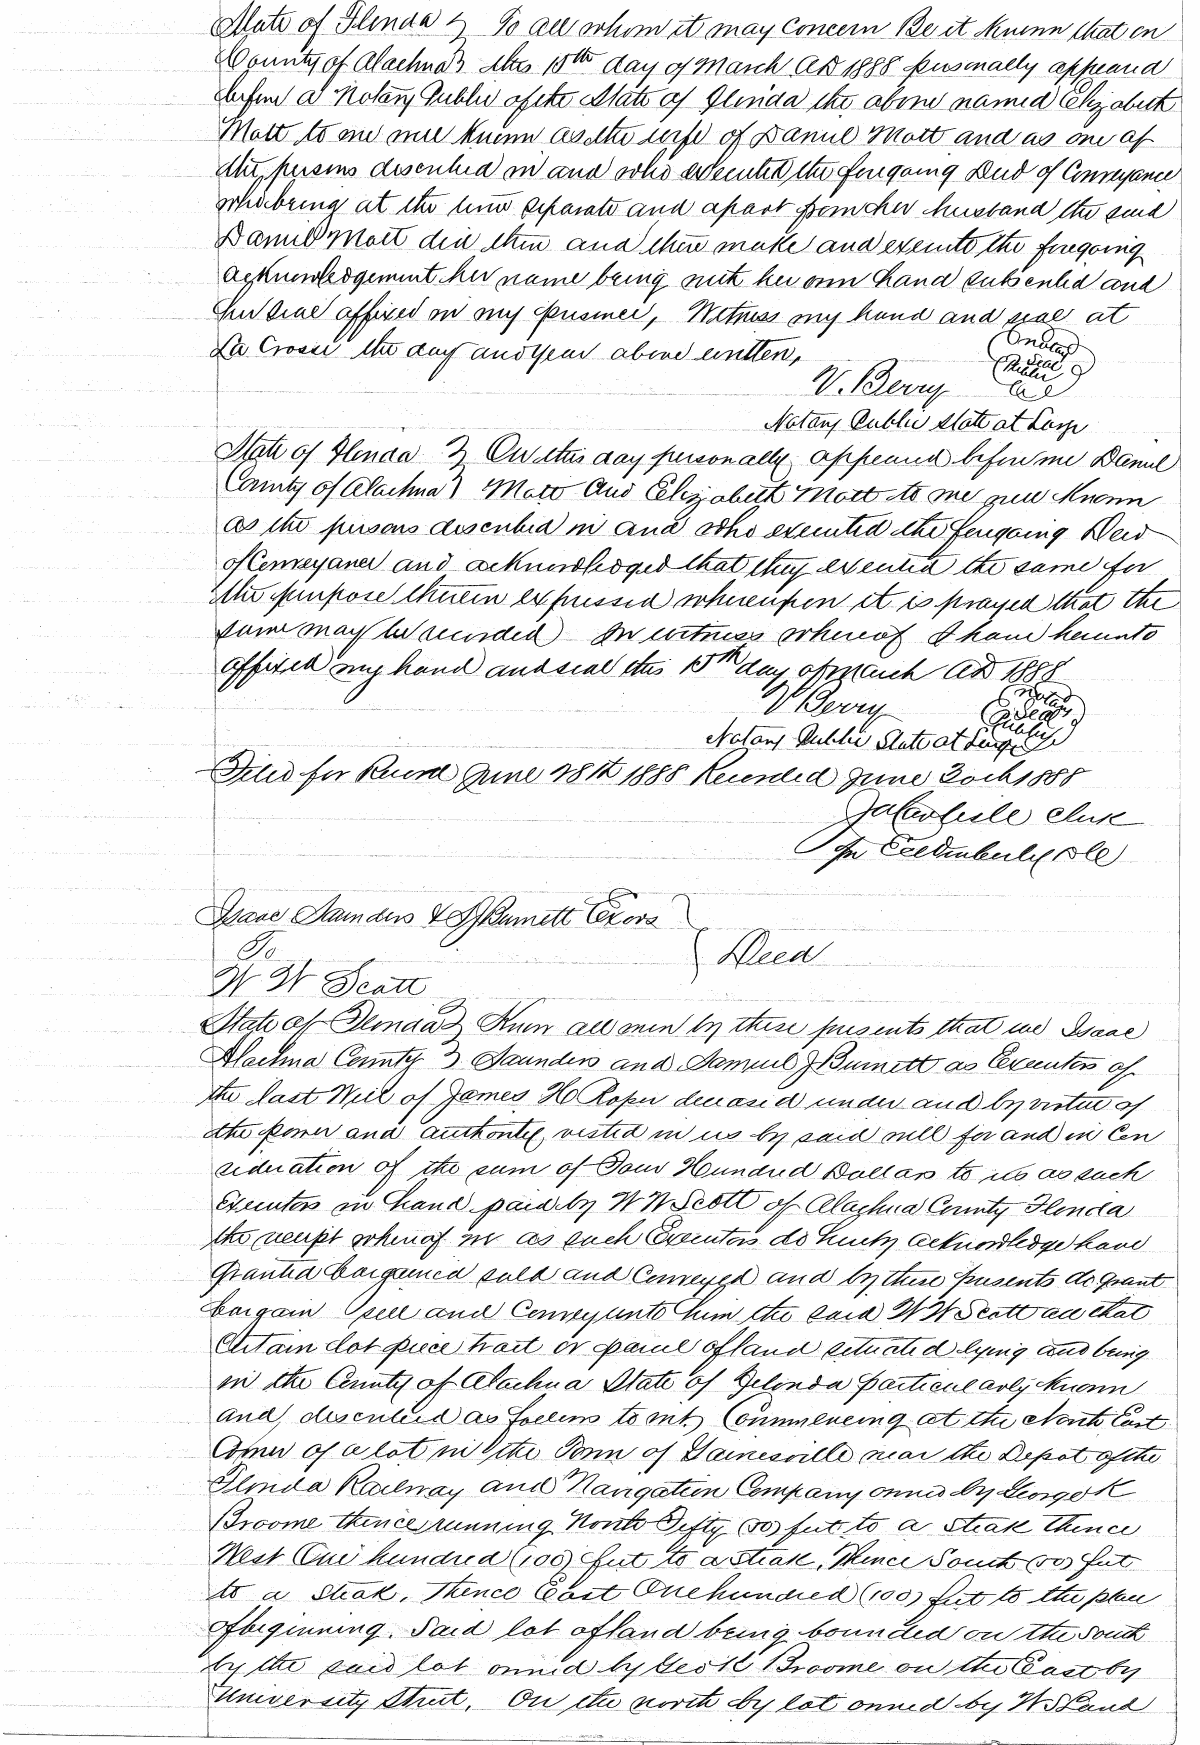 State of Florida } To all whom it may Concern Be it Known that on
County of Alachua } this 15th day of March AD 1888 personally appeared
before a Notary Public of the State of Florida the above named Elizabeth
Mott to me well Known as the wife of Daniel Mott and as one of
the persons described in and who executed the foregoing Deed of Conveyance
who being at the time separate and apart from her husband the said
Daniel Mott did then and there make and execute the foregoing
acknowledgement her name being with her own hand subscribed and
her seal affixed in my presence, Witness my hand and seal at
La Crosse the day and year above written,
Notary
Seal
Public
V. Berry
Notary Public State at Large
State of Florida } On this day personally appeared before me Daniel
County of Alachua } Mott And Elizabeth Mott to me well Known
as the persons described in and who executed the foregoing Deed
of Conveyance and acknowledged that they executed the same for
the purpose therein expressed whereupon it is prayed that the
same may be recorded In witness whereof I have hereunto
affixed my hand and seal this 15th day of March AD 1888
V Berry
Notary
Seal
Public
Notary Public State at Large
Filed for Record June 28th 1888 Recorded June 30th 1888
J A Carlisle Clerk
Isaac Saunders & S J Burnett Exors
To
} Deed
W W Scott
State of Florida } Know all men by these presents that we Isaac
Alachua County } Saunders and Samuel J Burnett as Executors of
the last Will of James H Roper deceased under and by virtue of
the power and authority vested in us by said will for and in Con
sideration of the sum of Four Hundred Dollars to us as such
Executors in hand paid by W W Scott of Alachua County Florida
the receipt whereof we as such Executors do hereby acknowledge have
Granted bargained sold and Conveyed and by these presents do grant
bargain sell and Convey unto him the said W W Scott all that
Certain lot piece tract or parcel of land situated lying and being
in the County of Alachua State of Florida particularly known
and described as follows to wit, Commencing at the North East
Corner of a lot in the Town of Gainesville near the Depot of the
Florida Railway and Navigation Company owned by George K
Broome thence running North Fifty (50) feet to a steak thence
West One hundred (100) feet to a steak, Thence South (50) feet
to a steak, Thence East One hundred (100) feet to the place
of beginning. Said lot of land being bounded on the South
by the said lot owned by Geo K Broome on the East by
University Street, On the north by lot owned by W S Land